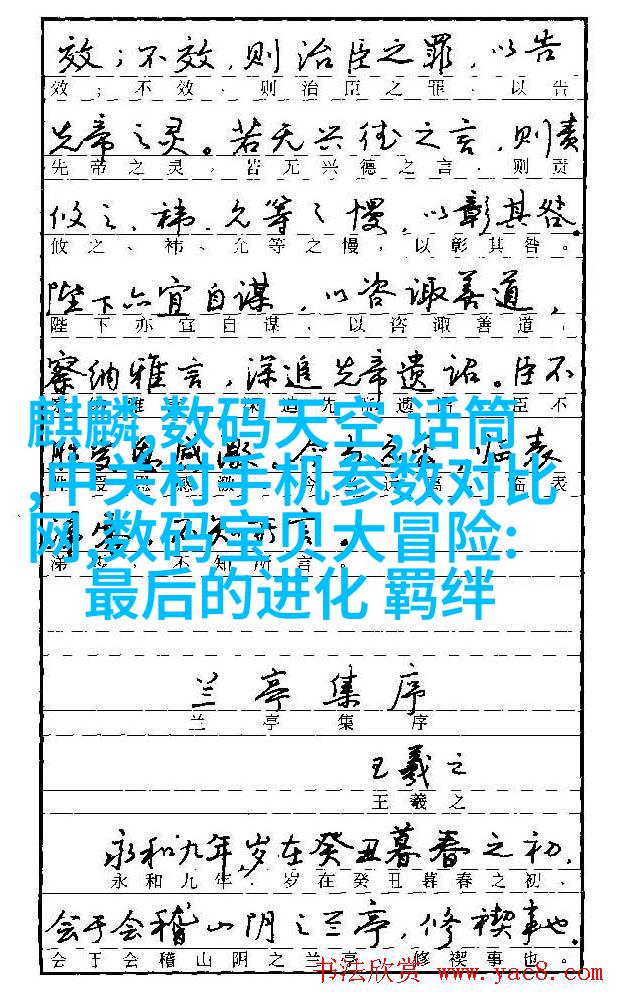 效；不效，则治臣之罪，以告
效；不效、则治臣之罪、以告
先帝之灵。若无兴德之言，则责
先帝之灵，若无兴德之言，则责
攸之、祎、允等之慢，以彰其咎。
攸之、祎、允等之慢，以彰其咎。
陛下亦宜自谋，以咨诹善道，
陛下亦宜自谋，以咨诹善道，
察纳雅言，深追先帝遗诏。臣不
麒麟,数码天空,话筒
,中关村手机参数对比
网,数码宝贝大冒险:
最后的进化 羁绊
感激。今 临表
不知所言。
不知所言。
兰亭集序
兰亭集序
王羲之
王羲之
永和九年，岁在癸丑暮春之初，
永和九年，岁在癸丑暮春之初、
会于会稽山阴之兰亭，修禊事也。
会于会稽山阴之兰亭，修禊事也。
书法欣赏 www.yac8.com